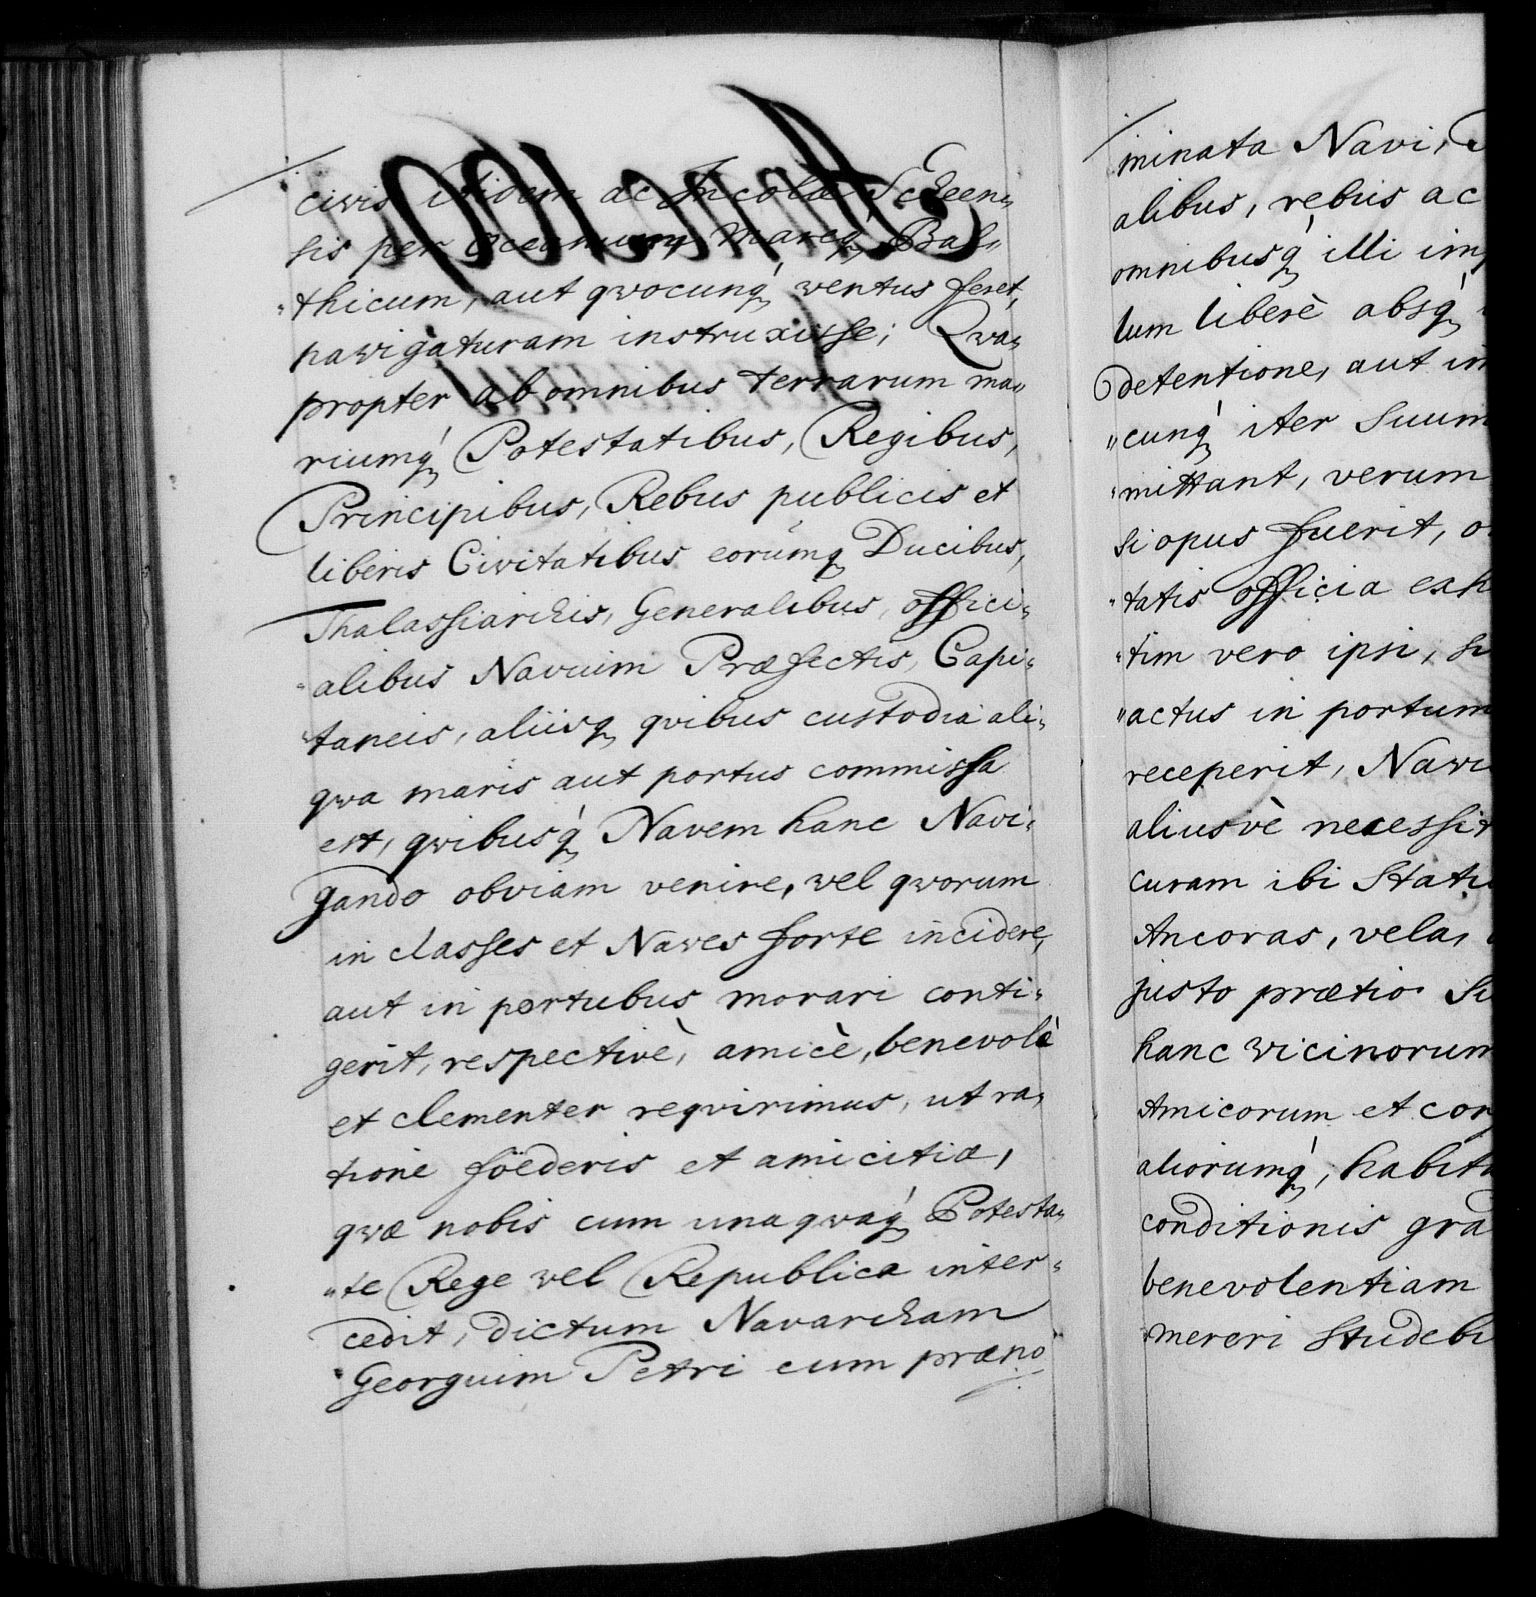 civis itidem ac Incolæ Scheen„
sis per Oceanum Mareq́ Bal„
„thicum, aut qvocunq́ ventus feret,
navigaturam instruxisse; Qva„
propter ab omnibus terrarum ma„
riumq́ Potestatibus, Regibus,
Principibus, Rebus publicis et
liberis Civitatibus eorúmq Ducibus,
Thalassiarchis, Generalibus, offici„
„alibus Navium Præfectis, Capi„
taneis, aliisq qvibus custodia ali„
qva maris aut portus commissa
est, qvibusq́ Navem hanc Navi„
gando obviam venire, vel qvorum
in classes et Naves forte incidere,
aut in portubus morari conti„
gerit, respectivè, amicè, benevolè
et clementer reqvirimus, ut ra„
tione föederis et amicitiæ,
qvæ nobis cum unaqvaq́ Potesta„
„te Rege vel Republica inter„
cedit, dictum Navarcham
Georgium Petri cum præno
minata Navi,
alibus, rebus ac
omnibusq́ illi
lum liberè absq́
detentione, aut
„cunq́ iter Suum
„mittant, verum
si opus fuerit,
„tatis officia
„tim vero ipsi,
„actus in portum
receperit,
aliusvè
curam ibi
Ancoras, vela,
justo prætio
hanc vicinorum
Amicorum et
aliorumq́,
conditionis
benevolentiam
mereri